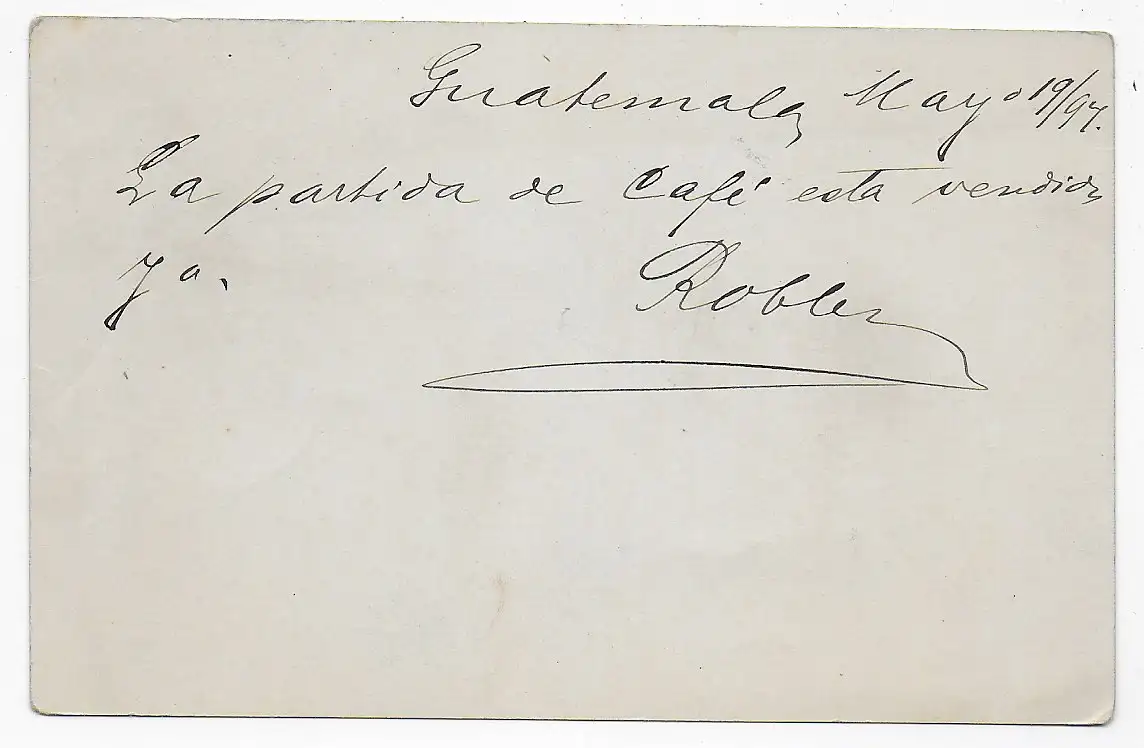 Guatemala, Mayo 19/97.
La partida de Café esta vendida
ya.
Robles